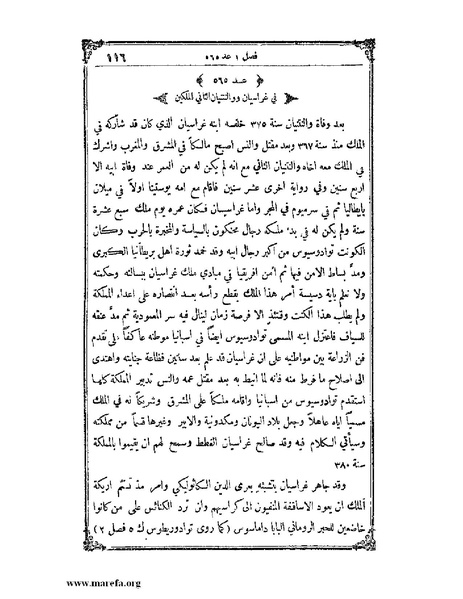 ١١٦ فصل ١ عد ٥٦٥
﴿ عـد ٥٦٥ ﴾
﴿ في غراسيان ووالنتنيان الثاني الملكين ﴾
بعد وفاة والنتنيان سنة ٣٧٥ خلفه ابنه غراسيان الذي كان قد شاركه في
الملك منذ سنة ٣٦٧ وبعد مقتل والنس اصبح مالكاً في المشرق والمغرب واشرك
في الملك معه اخاه والنتنيان الثاني مع انه لم يكن له من العمر عند وفاة ابيه الا
اربع سنين وفي رواية اخرى عشر سنين فاقام مع امه يوستينا اولاً في ميلان
بايطاليا ثم في سرميوم في المجر واما غراسيان فكان عمره يوم ملك سبع عشرة
سنة ولم يكن له في بدء ملكه رجال محنكون بالسياسة والخبرة بالحرب وكان
الكونت توادوسيوس من اكبر رجال ابيه وقد خمد ثورة اهل بريطانيا الكبرى
ومدَّ بساط الامن فيها ثم امن افريقيا في مبادي ملك غراسيان ببسالته وحكمته
ولا نعلم باية دسيسة أمر هذا الملك بقطع رأسه بعد انتصاره على اعداء المملكة
ولم يطلب هذا الكنت وقتئذٍ الا فرصة زمان لينال فيه سر المعمودية ثم مدَّ عنقه
للسياف فاعتزل ابنه المسمى توادوسيوس ايضاً في اسبانيا موطنه عاكفاً على تقدم
فن الزراعة بين مواطنيه على ان غراسيان قد علم بعد سنتين فظاعة جنايته واهتدى
الى اصلاح ما فرط منه فانه لما انيط به بعد مقتل عمه والنس تدبير المملكة كلها
استقدم توادوسيوس من اسبانيا واقامه ملكاً على المشرق وشريكاً له في الملك
مسمياً اياه عاهلاً وجعل بلاد اليونان ومكدونية والابير وغيرها قسماً من مملكته
وسيأتي الكلام فيه وقد صالح غراسيان الغطط وسمح لهم ان يقيموا بالمملكة
سنة ٣٨٠
وقد جاهر غراسيان بتشبثه بعرى الدين الكاثوليكي وامر مذ تسنم اريكة
الملك ان يعود الاساقفة المنفيون الى كراسيهم وان ترد الكنائس على من كانوا
خاضعين للحبر الروماني البابا داماسوس (كما روى توادوريطوس ك ٥ فصل ٢)
www.marefa.org